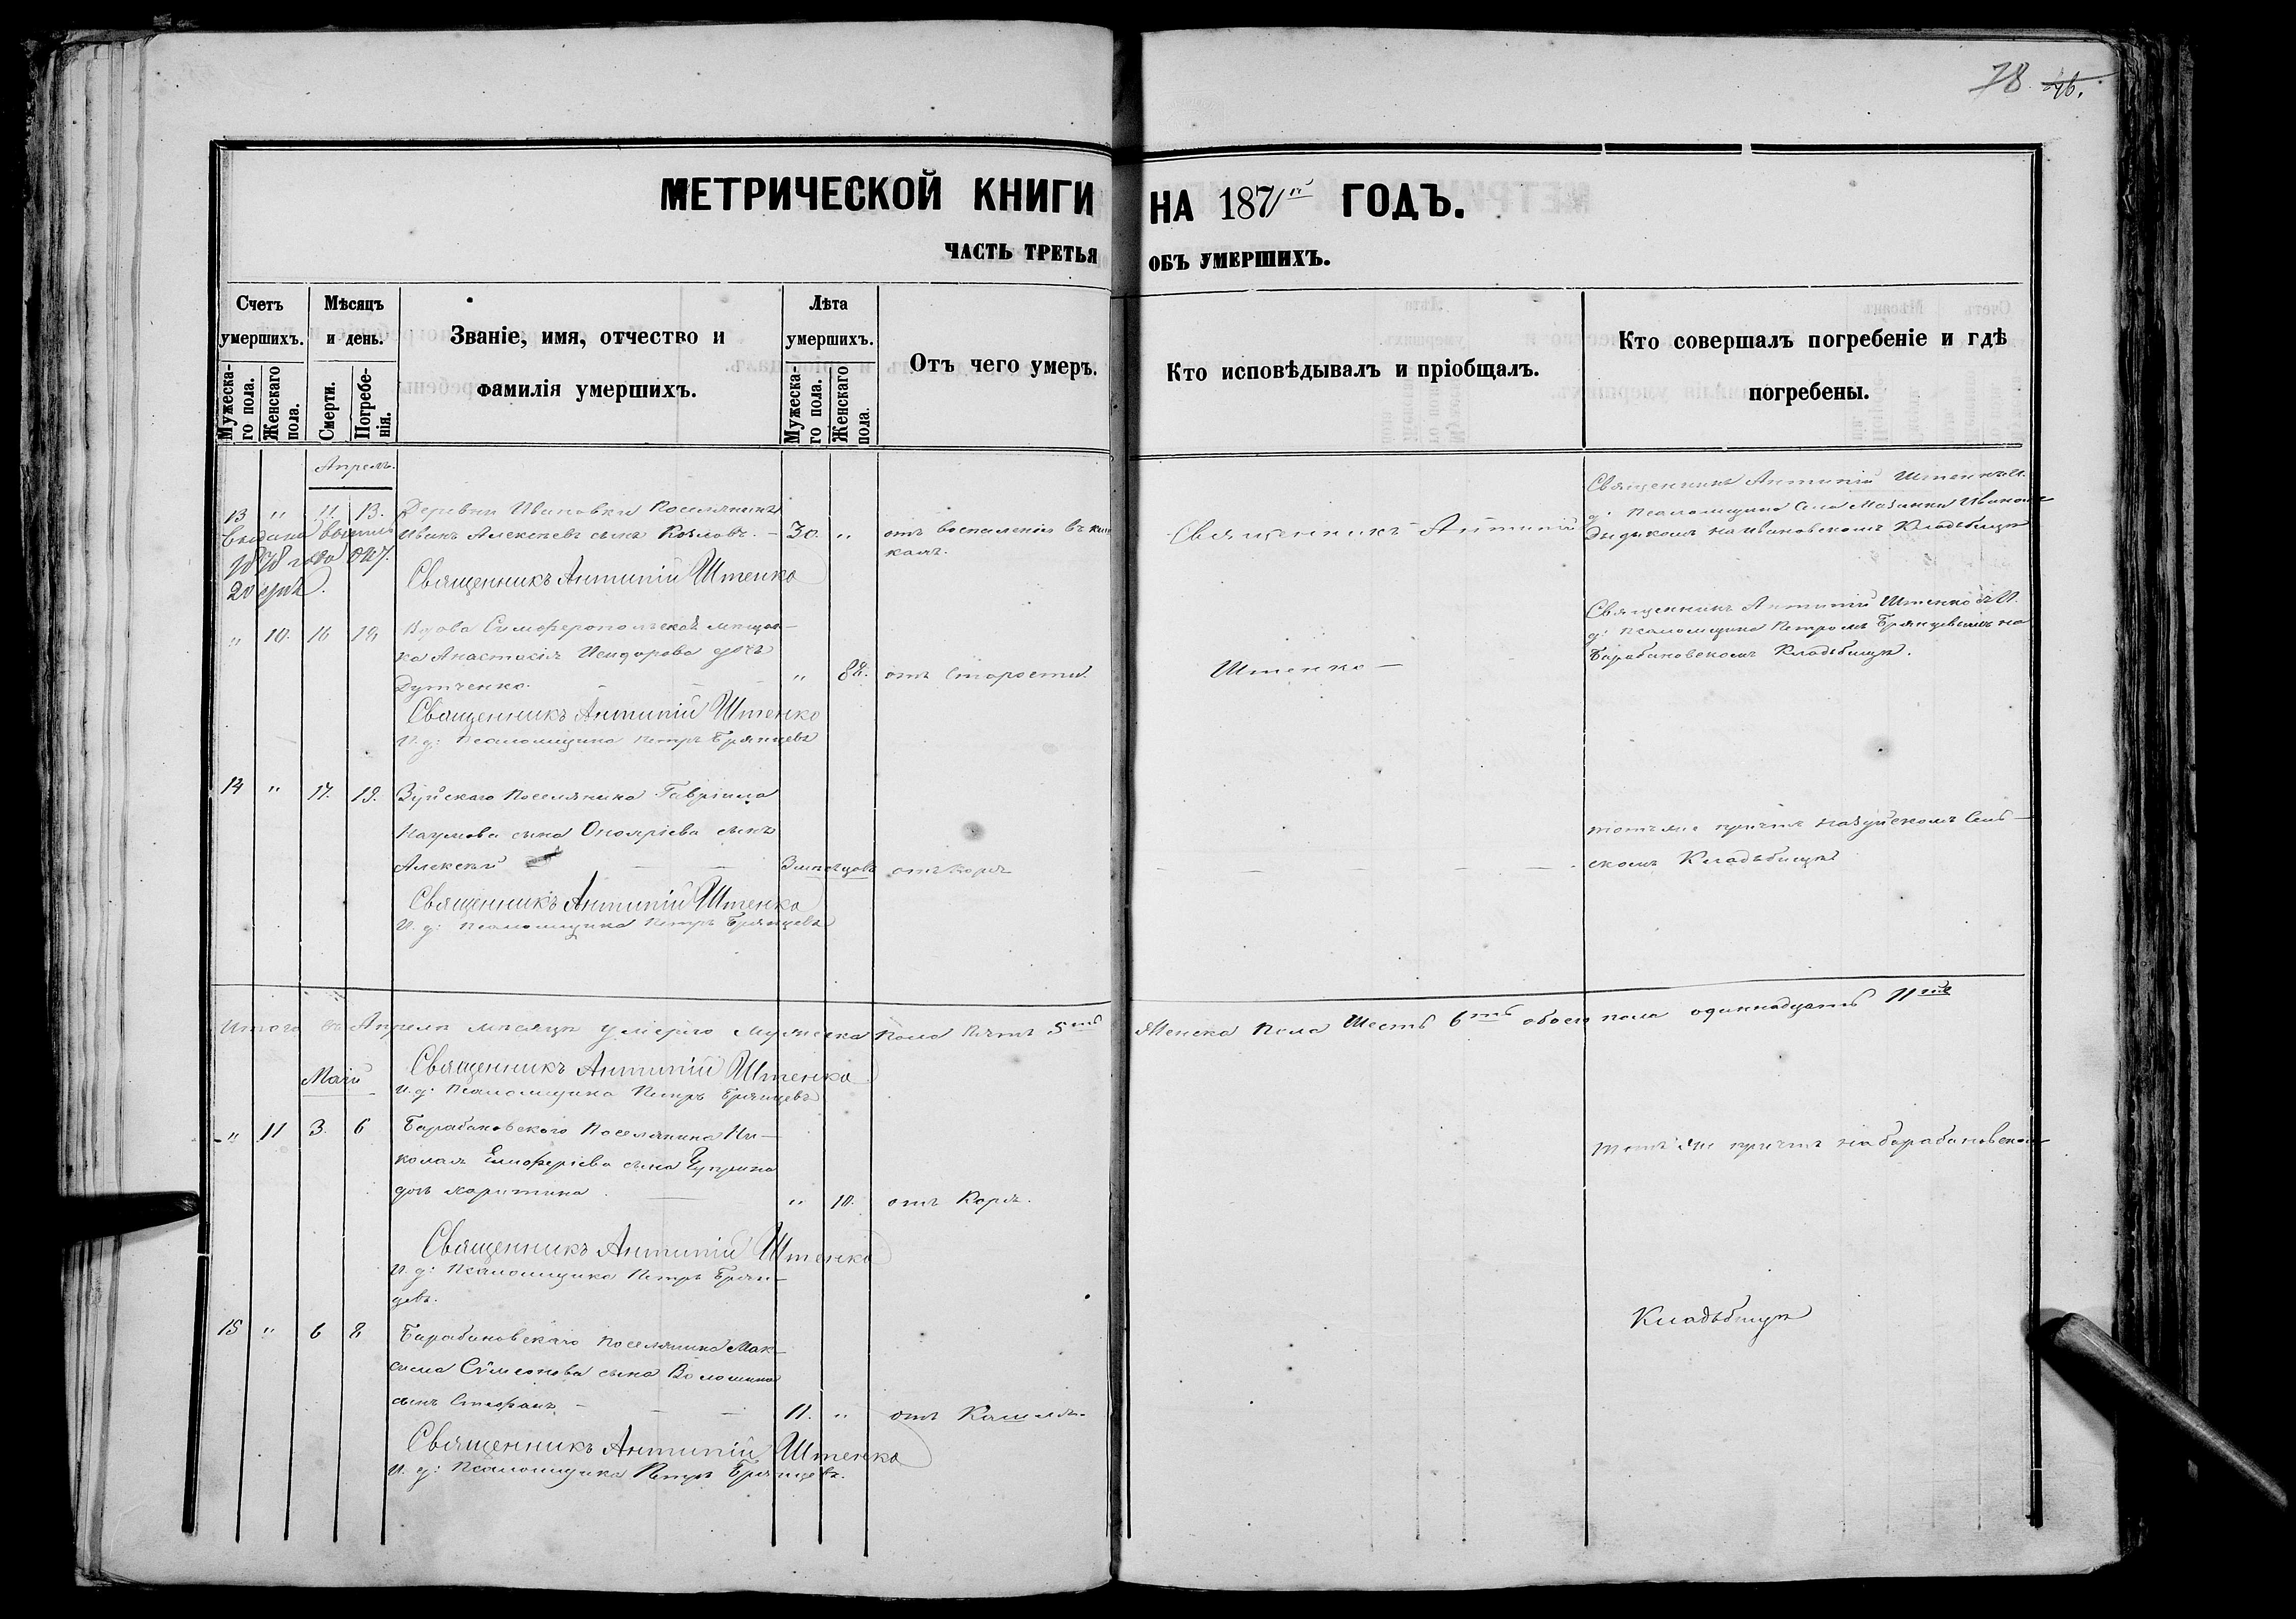 78 46.
МЕТРИЧЕСКОЙ КНИГИ НА 1871й ГОДЪ.
ЧАСТЬ ТРЕТЬЯ ОБЪ УМЕРШИХЪ.
Счетъ умершихъ.
Мужеска-го пола.
Женскаго пола.
Мѣсяцъ и день.
Смерти.
Погребе-нія.
Званіе, имя, отчество и
фамилія умершихъ.
Лѣта умершихъ.
Мужеска-го пола.
Женскаго пола.
Отъ чего умеръ.
Кто исповѣдывалъ и пріобщалъ.
Кто совершалъ погребеніе и гдѣ
погребены.
Апрель.
13 " 11. 13. Деревни Ивановки Поселянинъ
Иванъ Алексѣевъ сынъ Козловъ. – 30. " отъ воспаленія въ киш
кахъ.
1878 года
Священникъ Антипій
Священникъ Антипій Штенко И.
д: Псаломщика Села Мазанки
на Ивановскомъ Кладбищѣ
Священникъ Антипій Штенко
" 10. 16 18 Вдова Симферопольская мѣщан–
ка Анастасія Исидорова дочь
Дутченко. " 88. отъ Старости
Штенко –
Священникъ Антипій Штенко и И.
д: Псаломщика Петромъ Брянцевымъ на
Барабановскомъ Кладбищѣ.
Священникъ Антипій Штенко
И. д: Псаломщика Петръ Брянцевъ
14 " 17. 19. Зуйскаго Поселянина Гавріила
Наумова сына сынъ
Алексѣй 3 мѣсяцовъ отъ Кори
тотъ же причтъ на Зуйскомъ Сель–
скомъ Кладбищѣ
Священникъ Антипій Штенко
И. д: Псаломщика Петръ Брянцевъ
Итого въ Апрелѣ мѣсяцѣ умерло Мужеска Пола Пять 5ть Женска Пола Шесть 6ть обоего пола одиннадцать 11ть
Священникъ Антипій Штенко
Май
И. д: Псаломщика Петръ Брянцевъ
" 11 3. 6 Барабановскаго Поселянина Ни–
колая Елиоферіева сына Чуприна
дочь Харитина " 10. отъ Кори.
тотъ же причтъ на Барабановском
Священникъ Антипій Штенко
И. д: Псаломщика Петръ Брян–
цевъ.
Кладбищѣ
15 " 6 8 Барабановскаго Поселянина Мак–
сима Сѵмеонова сына Волошина
сынъ Стефанъ – 11. " отъ Кашля.
Священникъ Антипій Штенко
И. д: Псаломщика Петръ Брянцевъ.